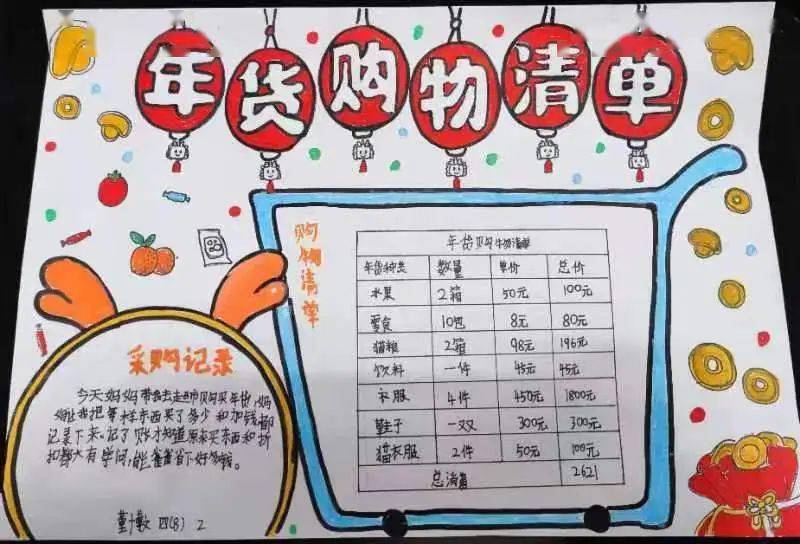 年货购物清单
购物清单
年货购物清单
年货种类 数量 单价 总价
水果 2箱 50元 100元
零食 10包 8元 80元
猫粮 2箱 98元 196元
饮料 一件 45元 45元
衣服 4件 450元 1800元
鞋子 一双 300元 300元
猫衣服 2件 50元 100元
总消费 2621
采购记录
今天妈妈带我去超市购买年货,妈
妈让我把每样东西买了多少和价钱都
记录下来,记了账才知道原来买东西和折
扣都大有学问,能省下好多钱。
四(8) 2